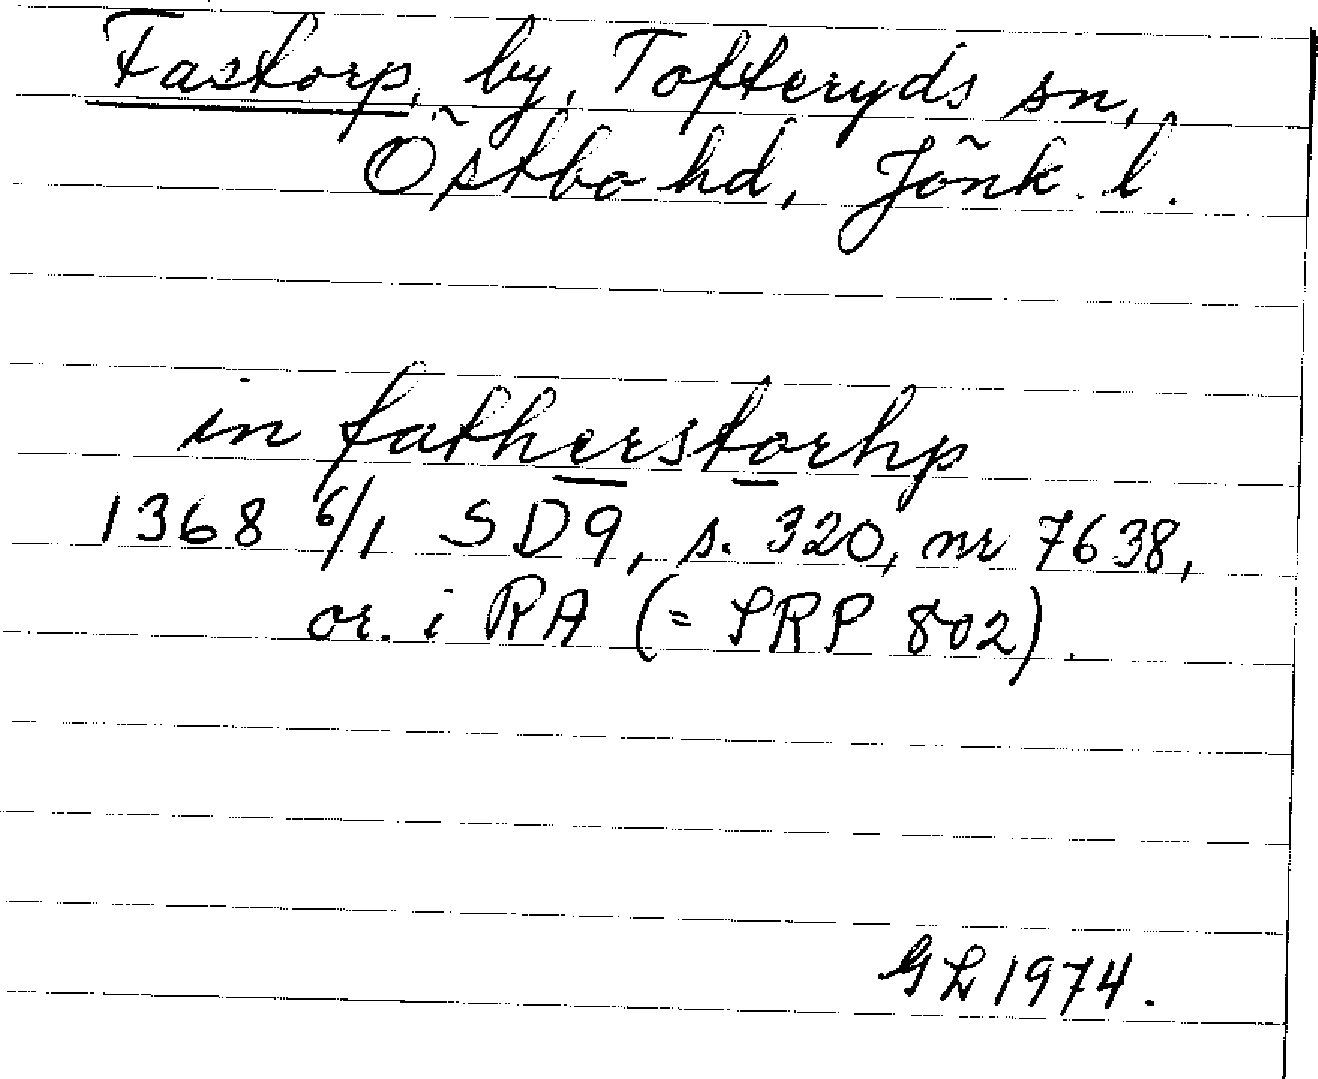 Fastorp, by, Tofteryds sn,
Östbo hd, Jönk. l.
in fatherstorhp
1368 6/1 SD9, s. 320, nr 7638,
or. i RA (= SRP 802).
GL 1974.